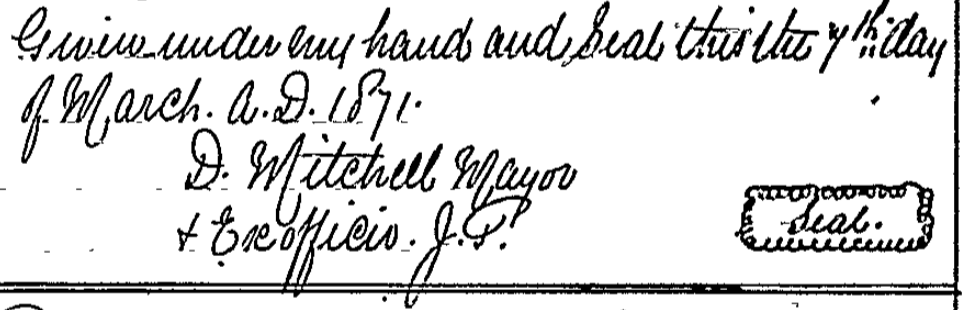 Given under my hand and Seal this the 7th day
of March. A.D. 1871.
D. Mitchell Mayor
+ Exofficio. J.P.
Seal.